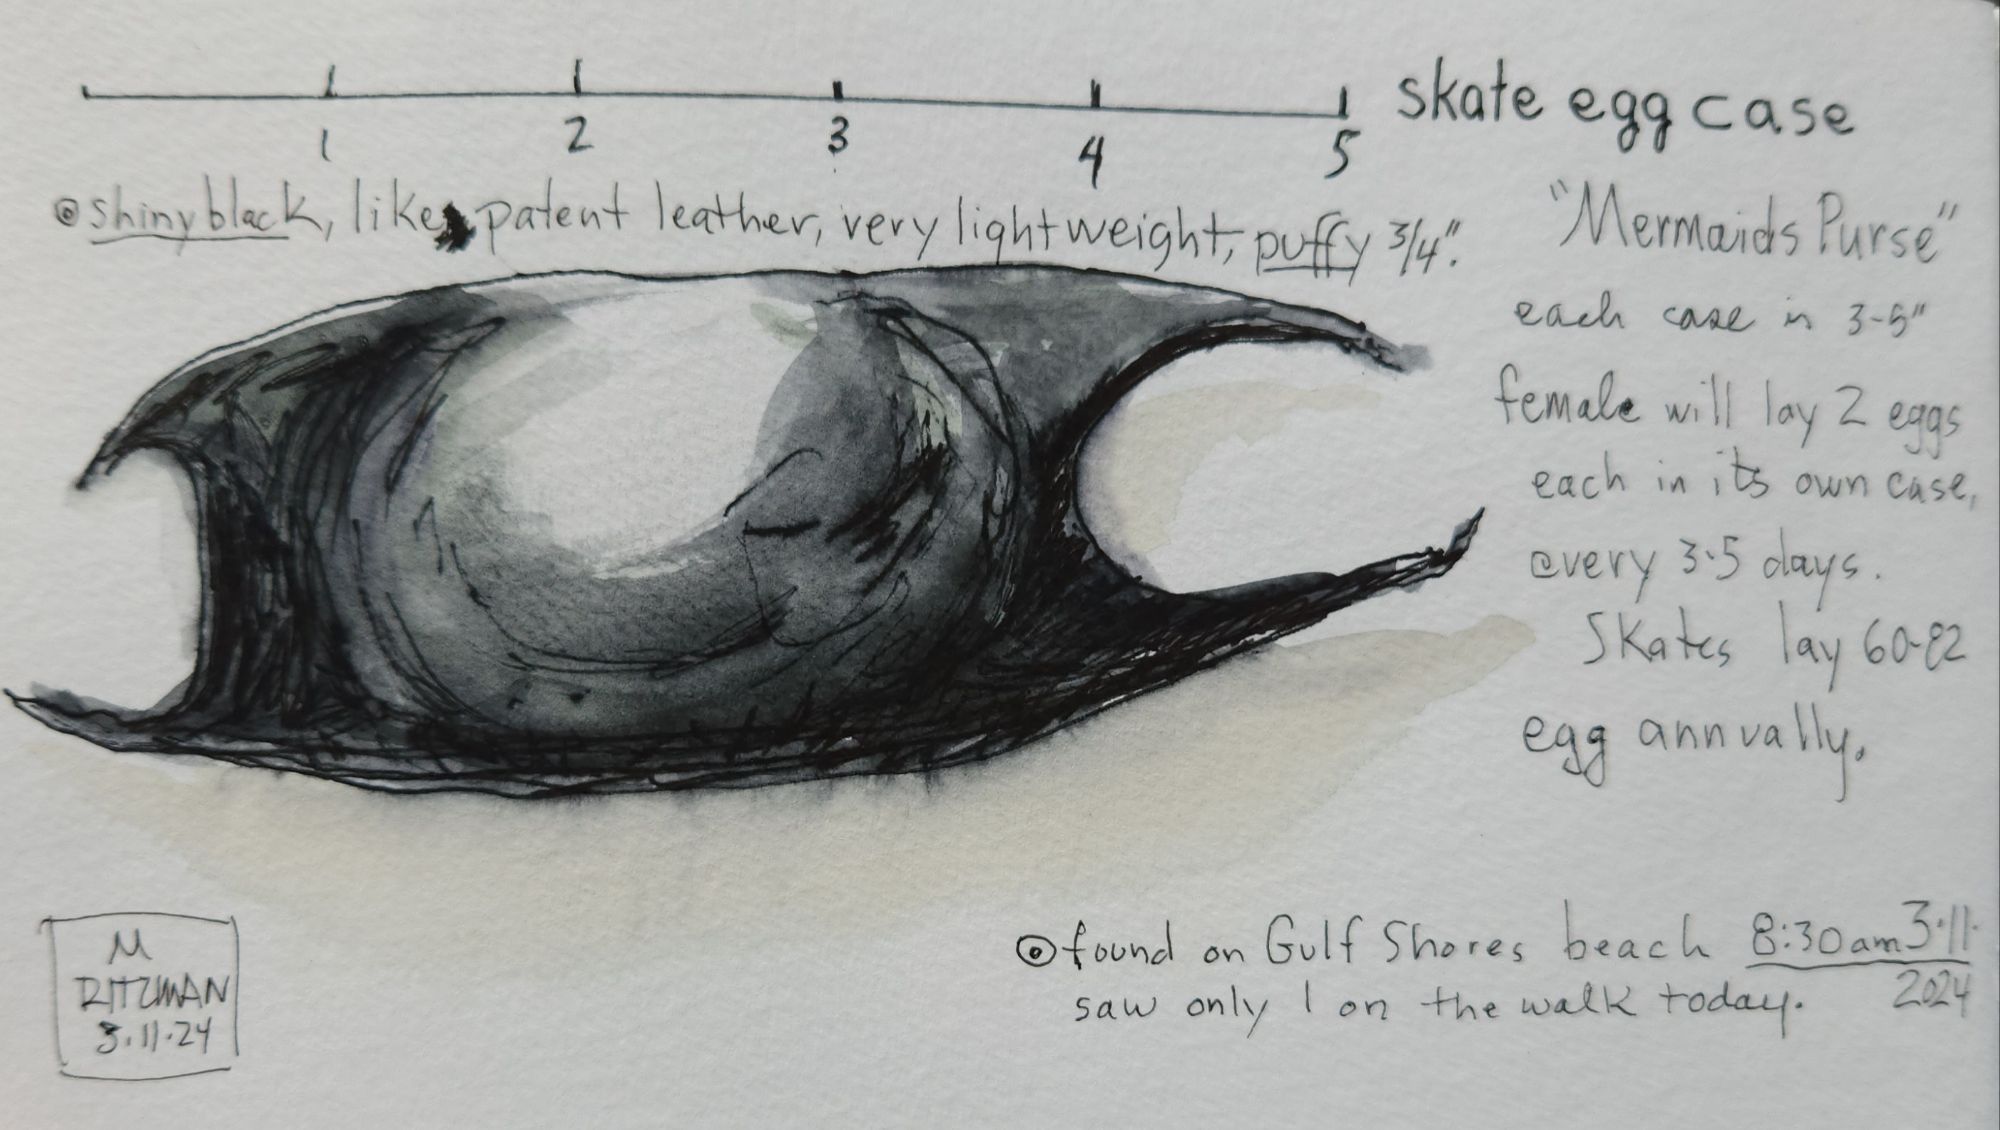 1 2 3 4 5
skate egg case
shiny black, like patent leather, very lightweight, puffy 3/4".
"Mermaids Purse"
each case is 3-5"
female will lay 2 eggs
each in its own case,
every 3-5 days.
Skates lay 60-82
egg annually.
found on Gulf Shores beach 8:30am 3.11.
2024
saw only 1 on the walk today.
M
RITZMAN
3.11.24